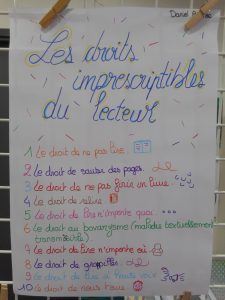 Daniel
Les droits
imprescriptibles
du lecteur
1 Le droit de ne pas lire
2 Le droit de sauter des pages.
3 Le droit de ne pas finir un livre
4 Le droit de relire
5 Le droit de lire n'importe quoi ...
6 Le droit au bovarysme (maladie textuellement
transmissible)
7 Le droit de lire n'importe où
8 Le droit de grappiller
9 Le droit de lire à haute voix
10 Le droit de nous taire